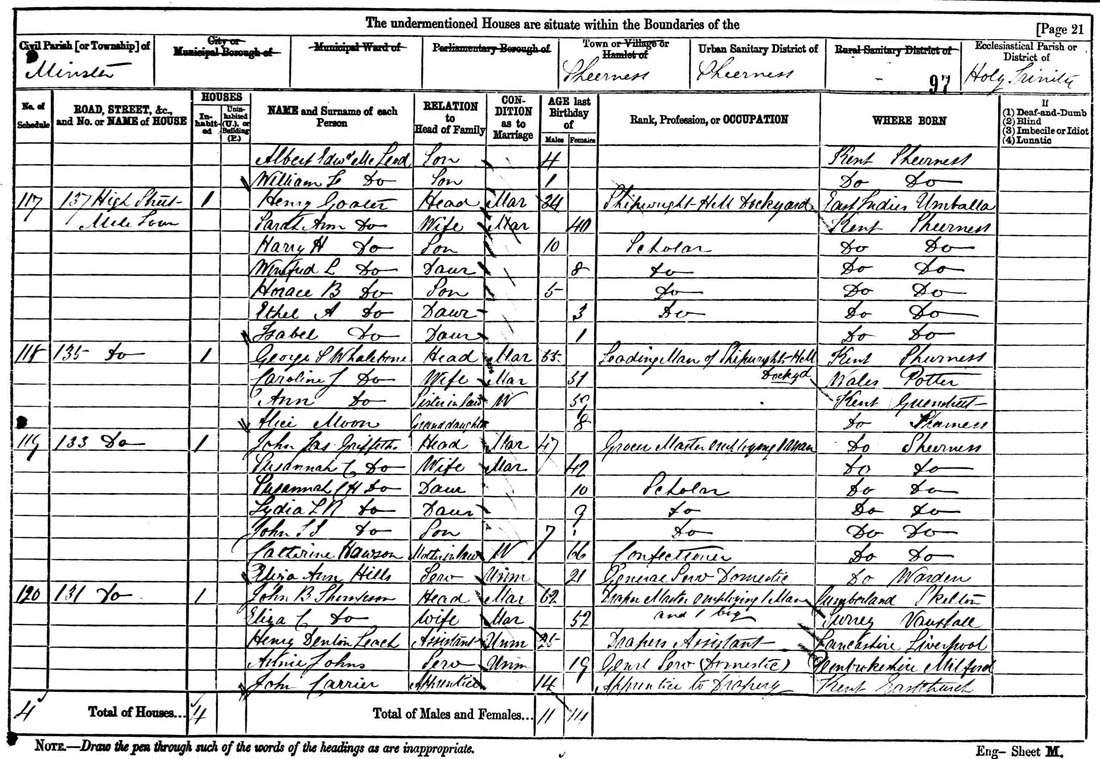 The undermentioned Houses are situate within the Boundaries of the
[Page 21
Civil Parish [or Township] of
City or Municipal Borough of
Municipal Ward of
Parliamentary Borough of
Town or Village or Hamlet of
Urban Sanitary District of
Rural Sanitary District of
Ecclesiastical Parish or District of
Minster Sheerness Sheerness 97 Holy Trinity
No. of Schedule
ROAD, STREET, &c., and No. or NAME of HOUSE
HOUSES
Inhabited
Uninhabited (U.), or Building (B.)
NAME and Surname of each Person
RELATION to Head of Family
CONDITION as to Marriage
AGE last Birthday of
Males
Females
Rank, Profession, or OCCUPATION
WHERE BORN
If
(1) Deaf-and-Dumb
(2) Blind
(3) Imbecile or Idiot
(4) Lunatic
Albert Edwd McLeod Son 4 Kent Sheerness
William Do Son 1 Do Do
117 137 High Street 1 Henry Head Mar 34 Shipwright Dockyard East Indies Umballa
Mile Town Sarah Ann Do Wife Mar 40 Kent Sheerness
Harry H Do Son 10 Scholar Do Do
Winifred L Do Daur 8 do Do Do
Horace B Do Son 5 do Do Do
Ethel A Do Daur 3 do Do Do
Isabel Do Daur 1 Do Do
118 135 do 1 George Whalebone Head Mar 55 Leading Man of Shipwrights Kent Sheerness
Dockyd
Caroline Do Wife Mar 51 Wales
Ann Do Sister in law W Kent
Alice Moon Granddaughter 8 do Sheerness
119 133 Do 1 John Jas Griffiths Head Mar 47 Grocer Master employing 1 Man Do Sheerness
Susannah C Do Wife Mar 42 Do do
Susannah C H do Daur 10 Scholar Do Do
Lydia do Daur 9 do Do Do
John do Son 7 do Do Do
Catherine Hawson Mother in law W 66 Confectioner Do Do
Eliza Ann Hills Serv Unm 21 General Serv Domestic Do Warden
120 131 Do 1 John B Thompson Head Mar 62 Draper Master employing 1 Man Cumberland Skelton
and 1 boy
Eliza C do Wife Mar 52 Surrey Vauxhall
Henry Denton Leach Assistant Unm 25 Drapers Assistant Lancashire Liverpool
Annie Johns Serv Unm 19 Genrl Serv (Domestic) Pembrokeshire Milford
John Carrier Apprentice 14 Apprentice to Drapery Kent Eastchurch
4 Total of Houses... 4 Total of Males and Females... 11 14
NOTE.—Draw the pen through such of the words of the headings as are inappropriate.
Eng— Sheet M.